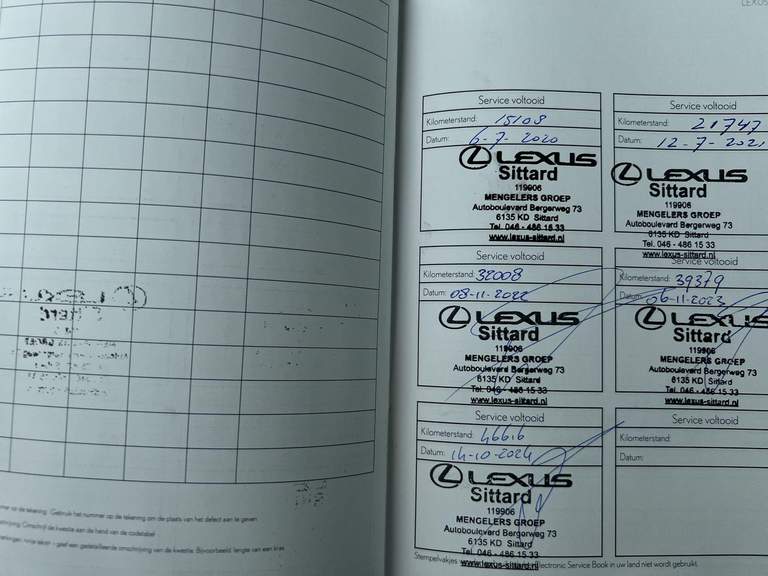 LEXUS
Service voltooid
Kilometerstand: 15108
Datum: 6-7-2020
LEXUS
Sittard
119906
MENGELERS GROEP
Autoboulevard Bergerweg 73
6135 KD Sittard
Tel. 046 - 486 15 33
www.lexus-sittard.nl
Service voltooid
Kilometerstand: 21747
Datum: 12-7-2021
LEXUS
Sittard
119906
MENGELERS GROEP
Autoboulevard Bergerweg 73
6135 KD Sittard
Tel. 046 - 486 15 33
www.lexus-sittard.nl
Service voltooid
Kilometerstand: 32008
Datum: 08-11-2022
LEXUS
Sittard
119906
MENGELERS GROEP
Autoboulevard Bergerweg 73
6135 KD Sittard
Tel. 046 - 486 15 33
www.lexus-sittard.nl
Service voltooid
Kilometerstand: 39379
Datum: 06-11-2023
LEXUS
Sittard
119906
MENGELERS GROEP
Autoboulevard Bergerweg 73
6135 KD Sittard
Tel. 046 - 486 15 33
www.lexus-sittard.nl
Service voltooid
Kilometerstand: 46616
Datum: 14-10-2024
LEXUS
Sittard
119906
MENGELERS GROEP
Autoboulevard Bergerweg 73
6135 KD Sittard
Tel. 046 - 486 15 33
www.lexus-sittard.nl
Service voltooid
Kilometerstand:
Datum:
Stempelvakjes electronic Service Book in uw land niet wordt gebruikt.
op de tekening. Gebruik het nummer op de tekening om de plaats van het defect aan te geven
Omschrijf de kwestie aan de hand van de codetabel
geef een gedetailleerde omschrijving van de kwestie. Bijvoorbeeld: lengte van een kras